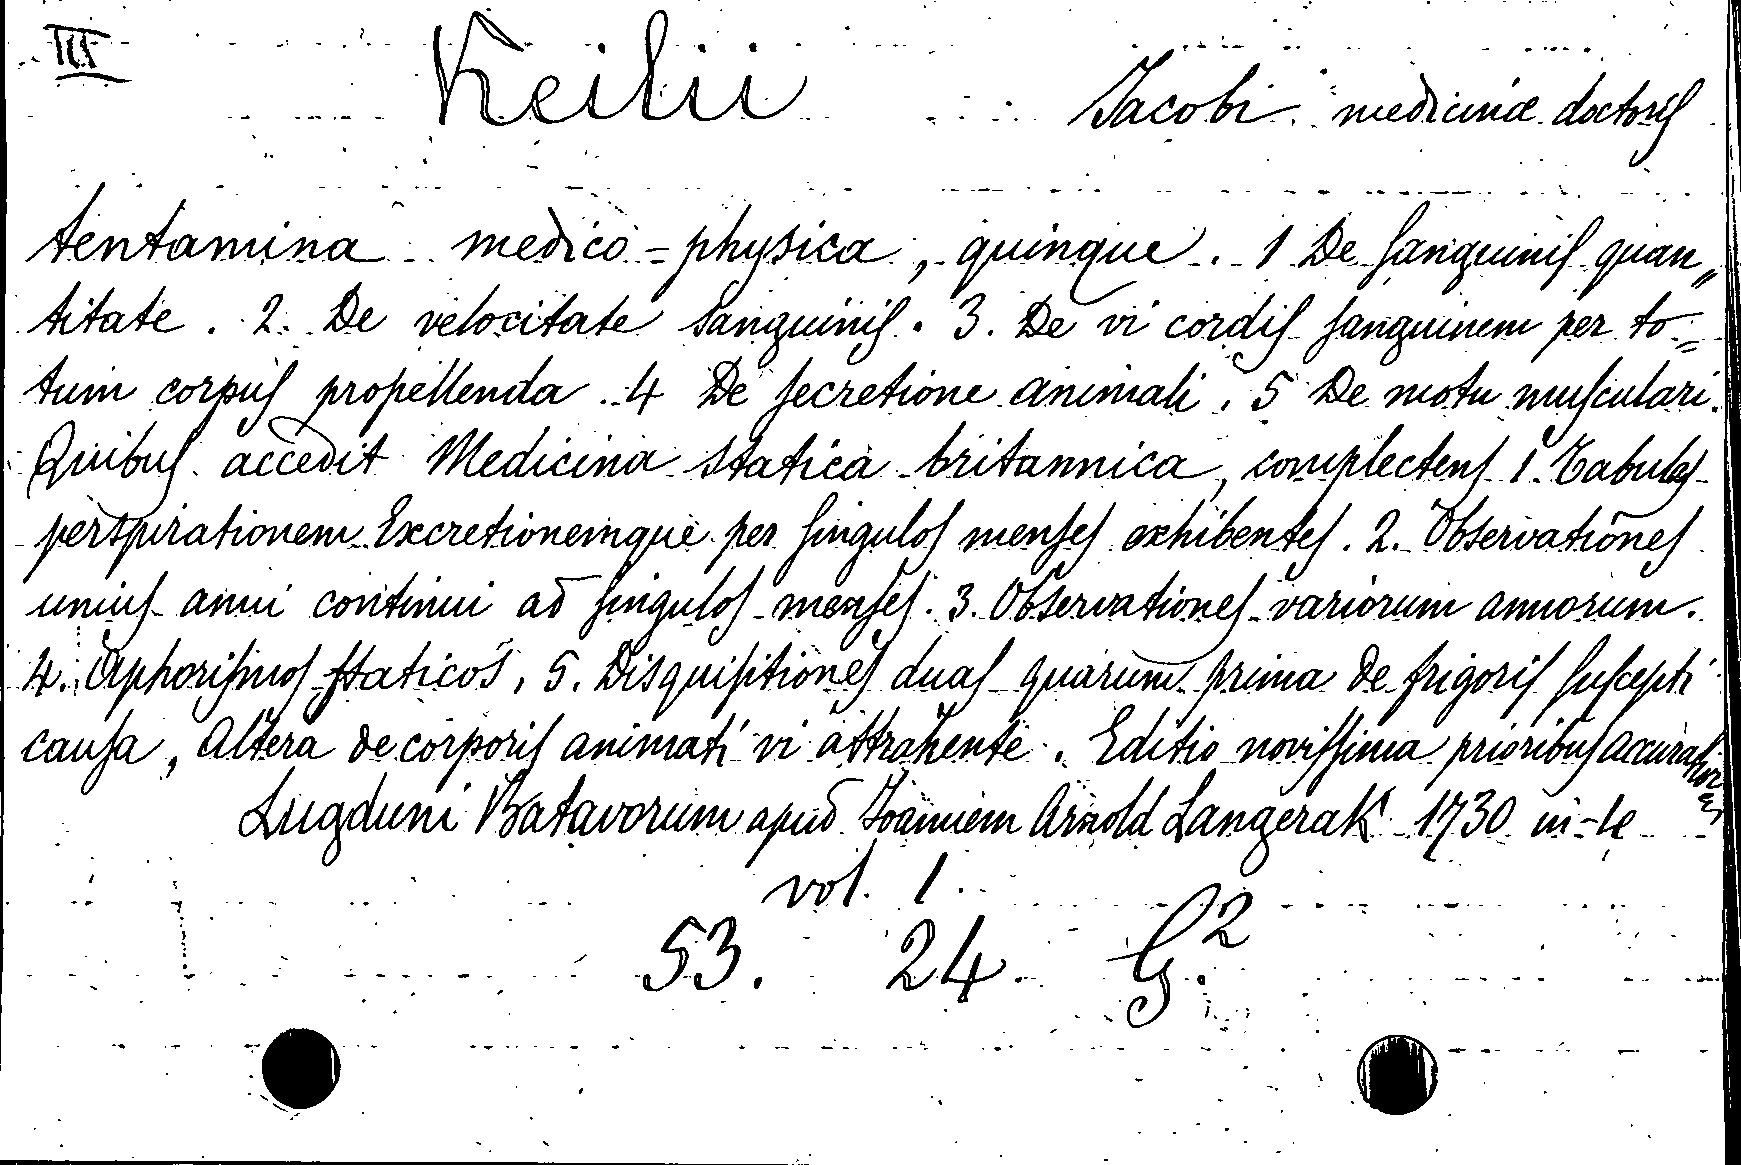 III
Keilii Jacobi medicinæ doctoris
tentamina medico=physica, quinque. 1 De sanguinis quan„
titate. 2. De velocitate sanguinis. 3. De vi cordis sanguinem per to=
tum corpus propellenda. 4 De secretione animali. 5 De motu musculari.
Quibus accedit Medicina statica britannica, complectens 1. Tabulas
perspirationem Excretionemque per singulos menses exhibentes. 2. Observationes
unius anni continui ad singulos menses. 3. Observationes variorum annorum.
4. Aphorismos staticos, 5. Disquisitiones duas quarum prima de frigoris suscepti
causa, Altera de corporis animati vi attrahente. Editio novissima prioribus accuratior
Lugduni Batavorum apud Joannem Arnold Langerak 1730 in-4e
vol. 1.
53. 24. G.2